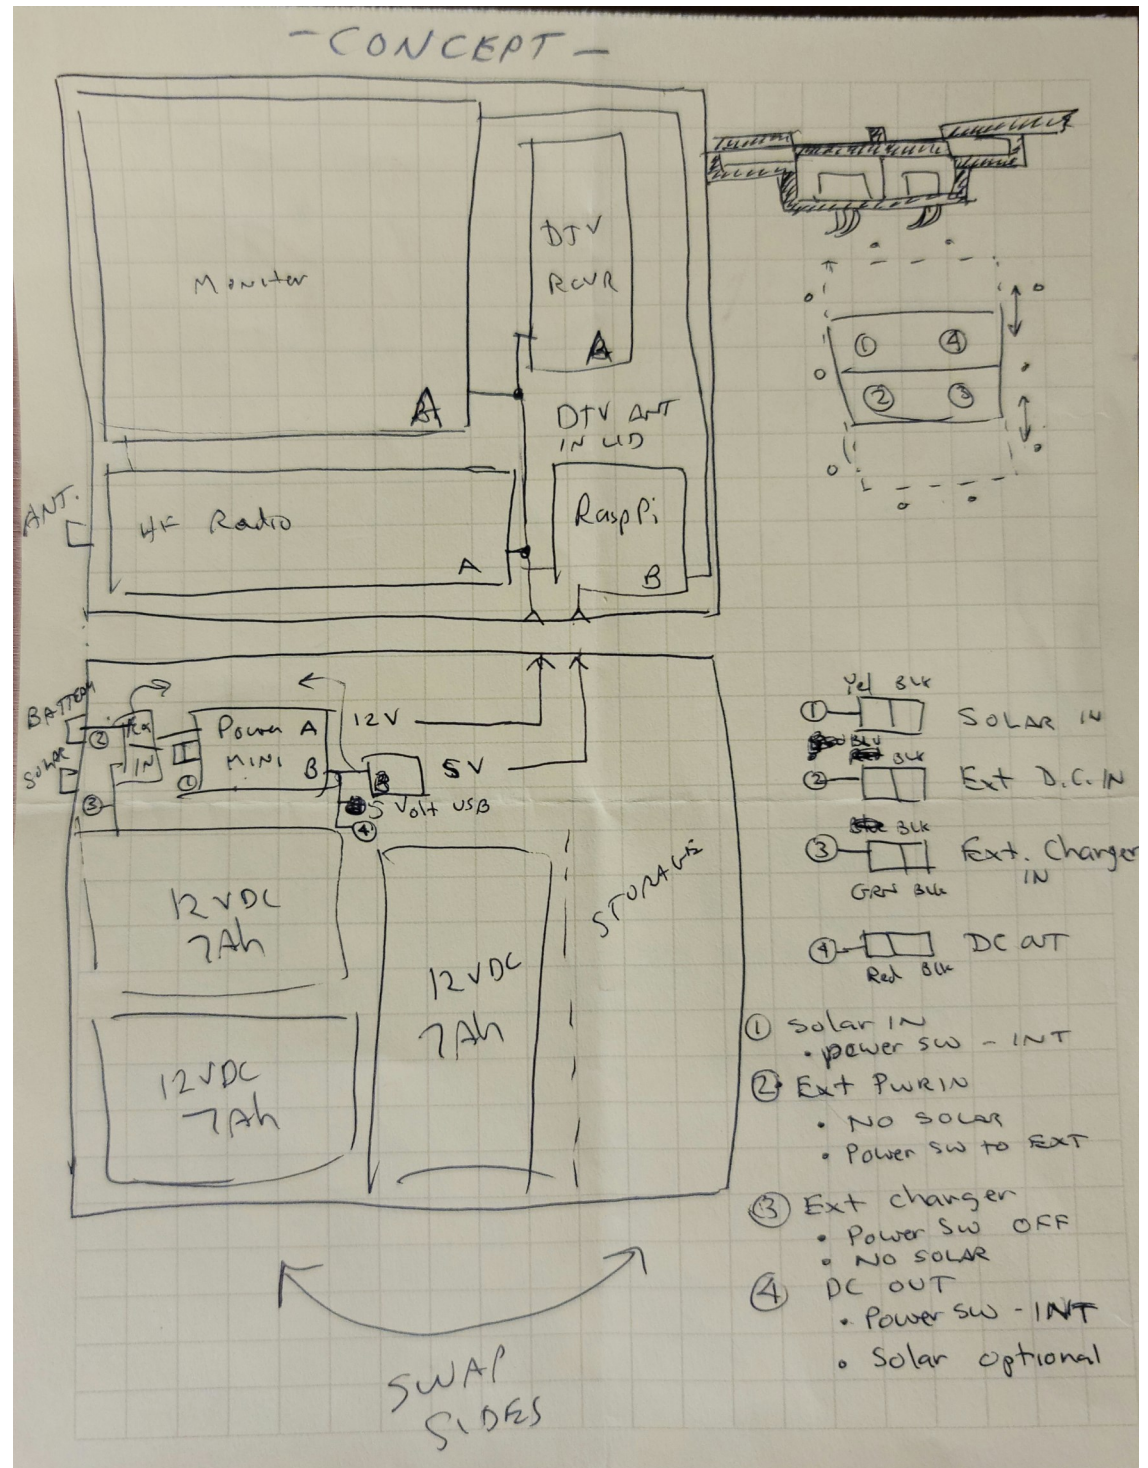 - CONCEPT -
Monitor
A
DTV
RCVR
A
DTV ANT
IN LID
ANT.
HF Radio
A
RaspPi
B
① ④
② ③
BATTERY
SOLAR
②
IN
①
③
Power A
MINI
B
12V
B
5V
5 Volt USB
④
12VDC
7Ah
12VDC
7Ah
12VDC
7Ah
STORAGE
SWAP
SIDES
Yel BLK
① SOLAR IN
BLK
② Ext D.C. IN
BLK
③ Ext. Charger
IN
GRN BLK
④ DC OUT
Red BLK
① Solar IN
• power SW - INT
② Ext PWR IN
• NO SOLAR
• Power SW to EXT
③ Ext charger
• Power SW OFF
• NO SOLAR
④ DC OUT
• Power SW - INT
• Solar optional